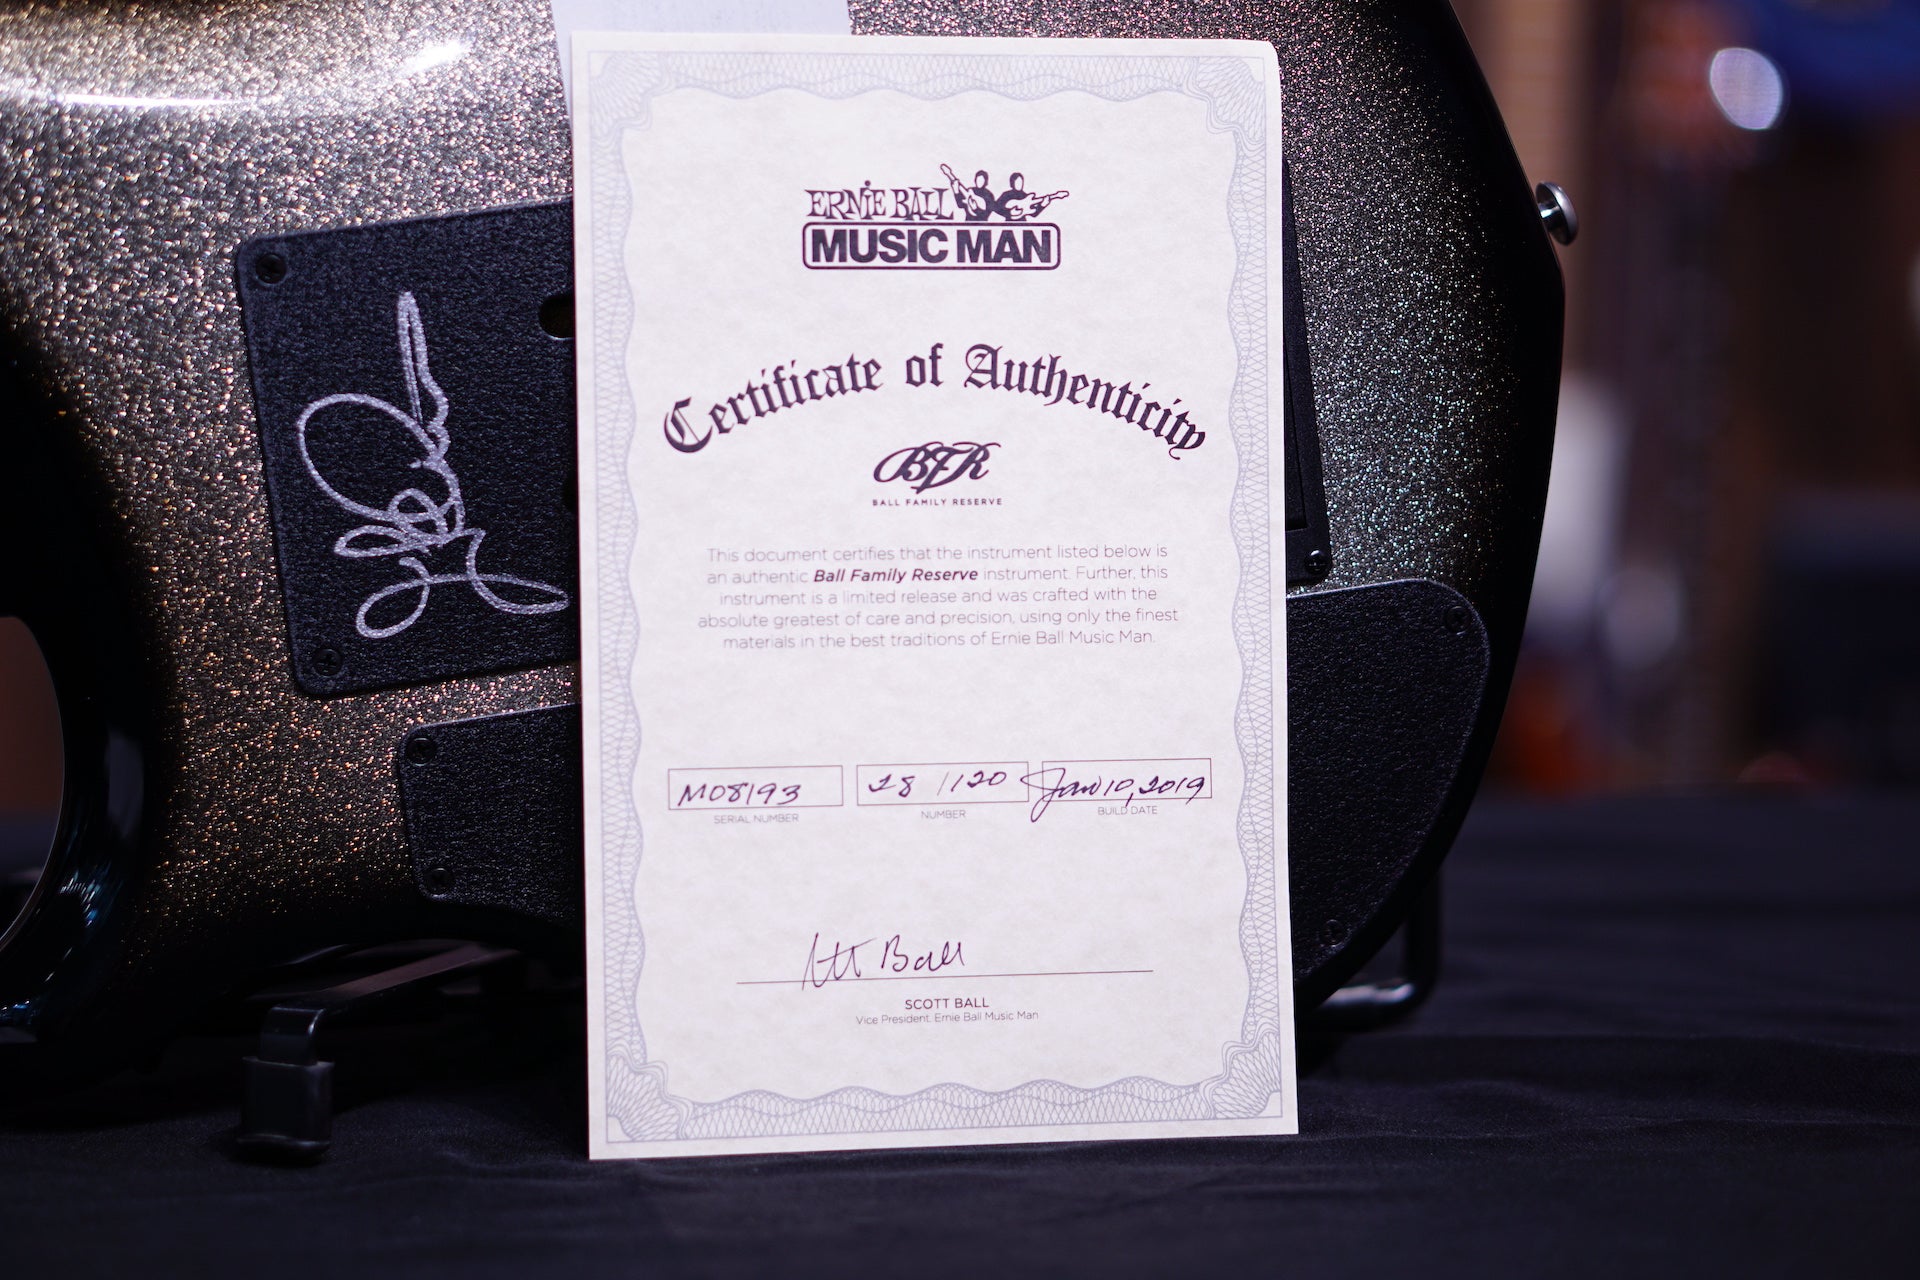 ERNIE BALL
MUSIC MAN
Certificate of Authenticity
BFR
BALL FAMILY RESERVE
This document certifies that the instrument listed below is
an authentic Ball Family Reserve instrument. Further, this
instrument is a limited release and was crafted with the
absolute greatest of care and precision, using only the finest
materials in the best traditions of Ernie Ball Music Man.
M08193 28/120 Jan 10, 2019
SERIAL NUMBER NUMBER BUILD DATE
Ball
SCOTT BALL
Vice President, Ernie Ball Music Man